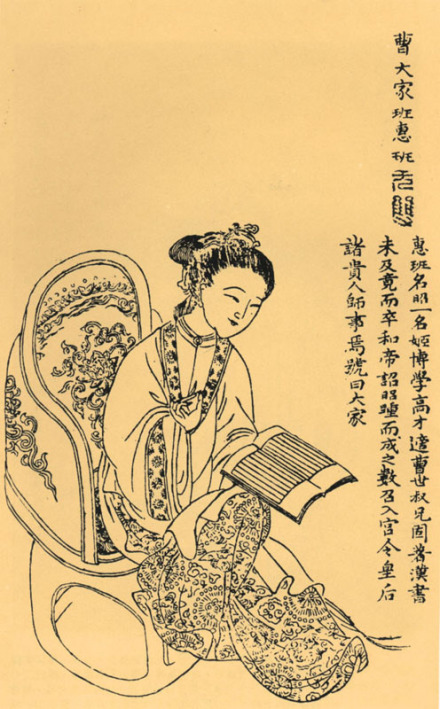 曹大家班惠班 无雙
惠班名昭一名姬博學高才適曹世叔兄固著漢書
未及竟而卒和帝詔昭踵而成之數召入宮令皇后
諸貴人師事焉號曰大家